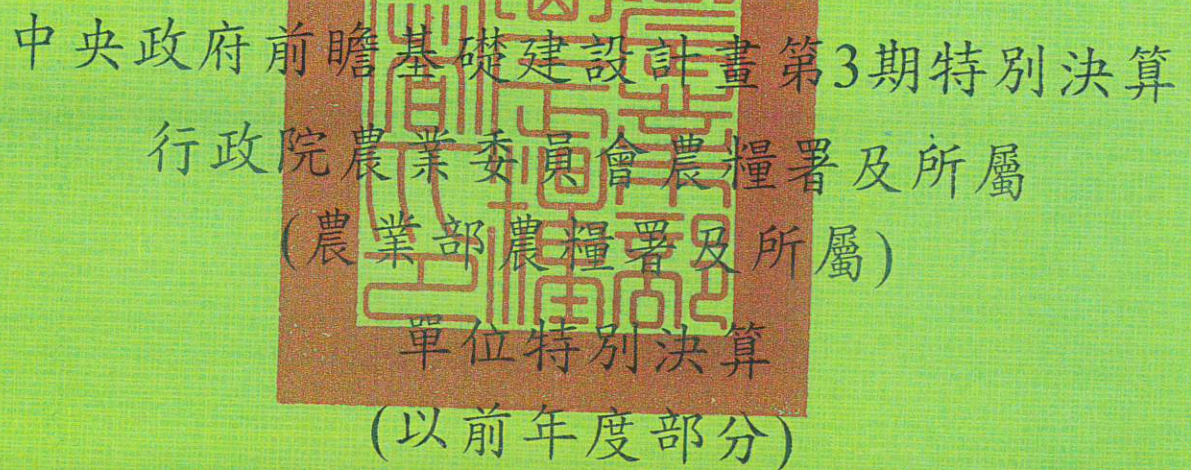 中央政府前瞻基礎建設計畫第3期特別決算
行政院農業委員會農糧署及所屬
(農業部農糧署及所屬)
單位特別決算
(以前年度部分)